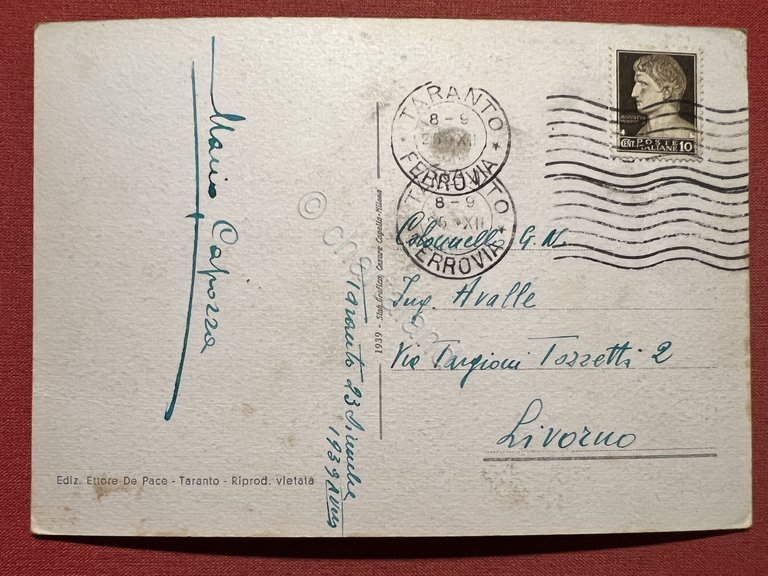 Mario Capozza
TARANTO
8-9
FERROVIA
TARANTO
8-9
25 XII
FERROVIA
CENT. POSTE ITALIANE 10
Colonnello G.N.
Ing. Avalle
Via Targioni Tozzetti 2
Livorno
1939 - Stab. Grafico Cesare Capello-Milano
Taranto 23 Dicembre
1939 XVIII
Ediz. Ettore De Pace - Taranto - Riprod. vietata